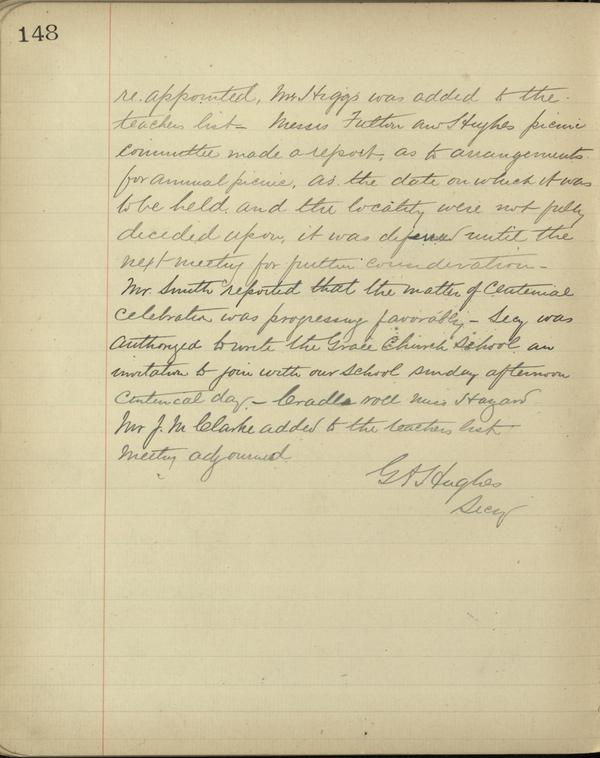 148
re.appointed, Mr Higgs was added to the
teachers list - Messrs Fulton and Hughes picnic
committee made a report, as to arrangements
for annual picnic, as the date on which it was
to be held and the locality were not fully
decided upon, it was defered until the
next meeting for further consideration -
Mr. Smith reported that the matter of Centenial
celebration was progressing favorably - Secy was
authorized to write the Grace Church School an
invitation to join with our school sunday afternoon
Centenical day. - Cradle roll Miss Hazard
Mr J. M. Clarke added to the teachers list
Meeting adjourned.
Hughes
Secy